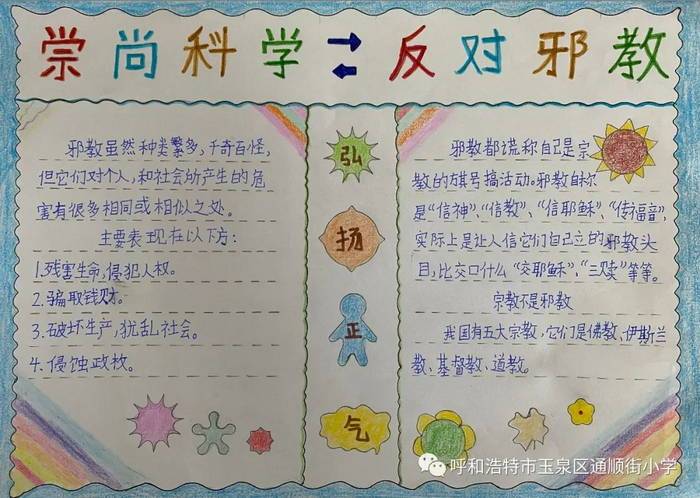 崇尚科学 反对邪教
邪教虽然种类繁多,千奇百怪,
但它们对个人,和社会所产生的危
害有很多相同或相似之处。
主要表现在以下方:
1.残害生命,侵犯人权。
2.骗取钱财。
3.破坏生产,扰乱社会。
4.侵蚀政权。
弘
扬
正
气
邪教都谎称自己是宗
教的旗号搞活动。邪教自称
是“信神”、“信教”、“信耶稣”、“传福音”,
实际上是让人信它们自己立的邪教头
目,比交口什么“交耶稣”、“三赎”等等。
宗教不是邪教
我国有五大宗教,它们是佛教、伊斯兰
教、基督教、道教。
呼和浩特市玉泉区通顺街小学